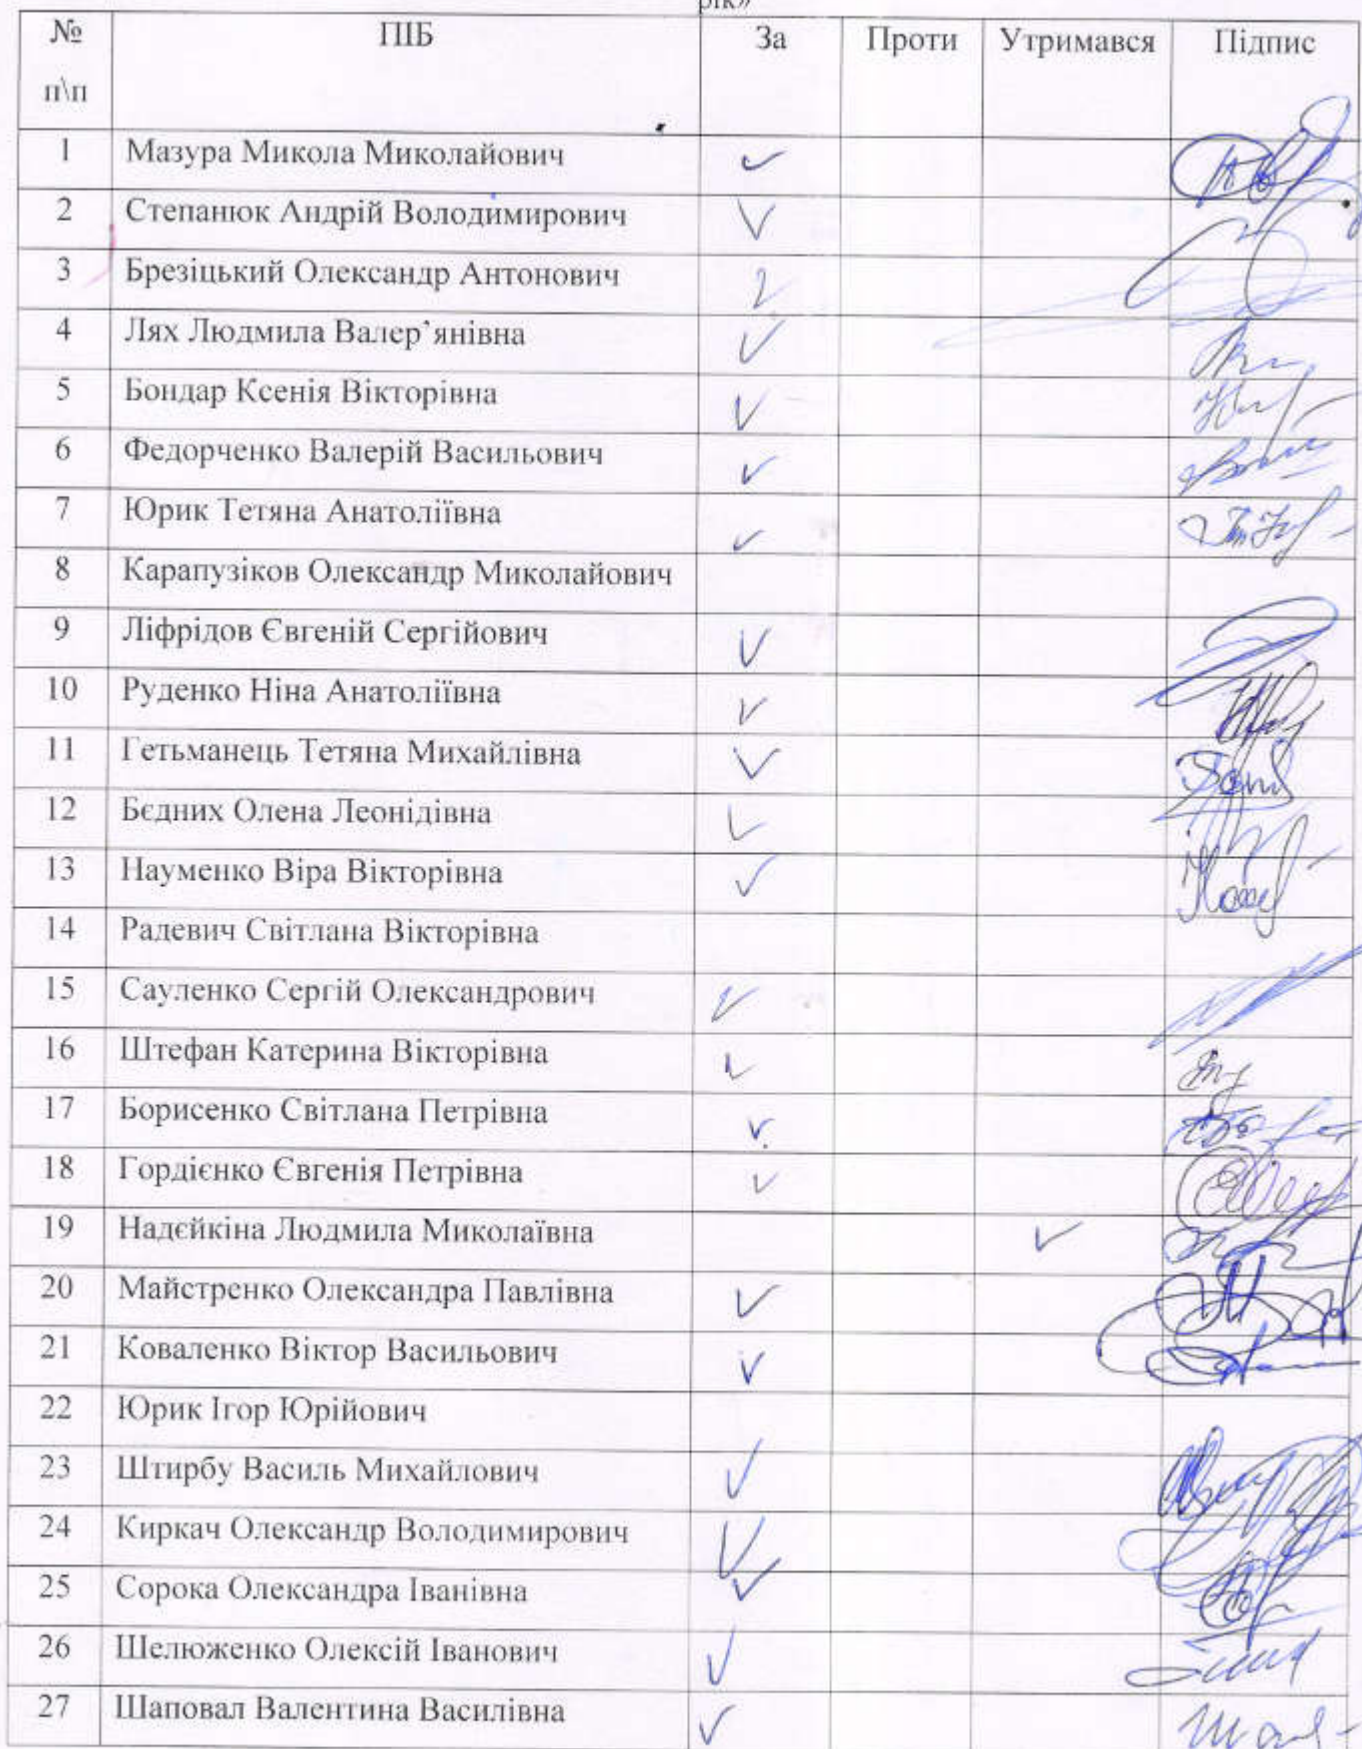 рік»
№ п\п ПІБ За Проти Утримався Підпис
1 Мазура Микола Миколайович ✓
2 Степанюк Андрій Володимирович ✓
3 Брезіцький Олександр Антонович ✓
4 Лях Людмила Валер’янівна ✓
5 Бондар Ксенія Вікторівна ✓
6 Федорченко Валерій Васильович ✓
7 Юрик Тетяна Анатоліївна ✓
8 Карапузіков Олександр Миколайович
9 Ліфрідов Євгеній Сергійович ✓
10 Руденко Ніна Анатоліївна ✓
11 Гетьманець Тетяна Михайлівна ✓
12 Бєдних Олена Леонідівна ✓
13 Науменко Віра Вікторівна ✓
14 Радевич Світлана Вікторівна
15 Сауленко Сергій Олександрович ✓
16 Штефан Катерина Вікторівна ✓
17 Борисенко Світлана Петрівна ✓
18 Гордієнко Євгенія Петрівна ✓
19 Надєйкіна Людмила Миколаївна ✓
20 Майстренко Олександра Павлівна ✓
21 Коваленко Віктор Васильович ✓
22 Юрик Ігор Юрійович
23 Штирбу Василь Михайлович ✓
24 Киркач Олександр Володимирович ✓
25 Сорока Олександра Іванівна ✓
26 Шелюженко Олексій Іванович ✓
27 Шаповал Валентина Василівна ✓